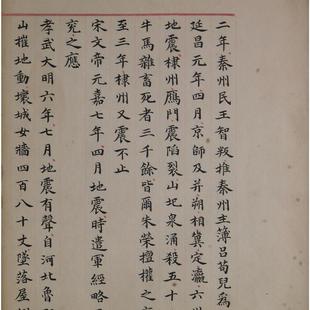 二年秦州民王智叛推秦州主簿呂苟兒爲
延昌元年四月京師及并朔相冀定瀛六州
地震棣州鴈門震陷裂山圯泉涌殺五十
牛馬雜畜死者三千餘皆爾朱榮擅權之
至三年棣州又震不止
宋文帝元嘉七年四月地震時遣軍經略
兗之應
孝武大明六年七月地震有聲自河北魯
山摧地動壞城女牆四百八十丈墜落屋